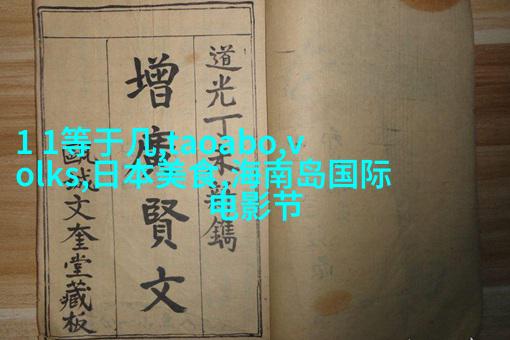 1 1等于几,taoabo,v
olks,日本美食,海南岛国际
电影节
道光丁未新鐫
增廣賢文
甌城文奎堂藏板